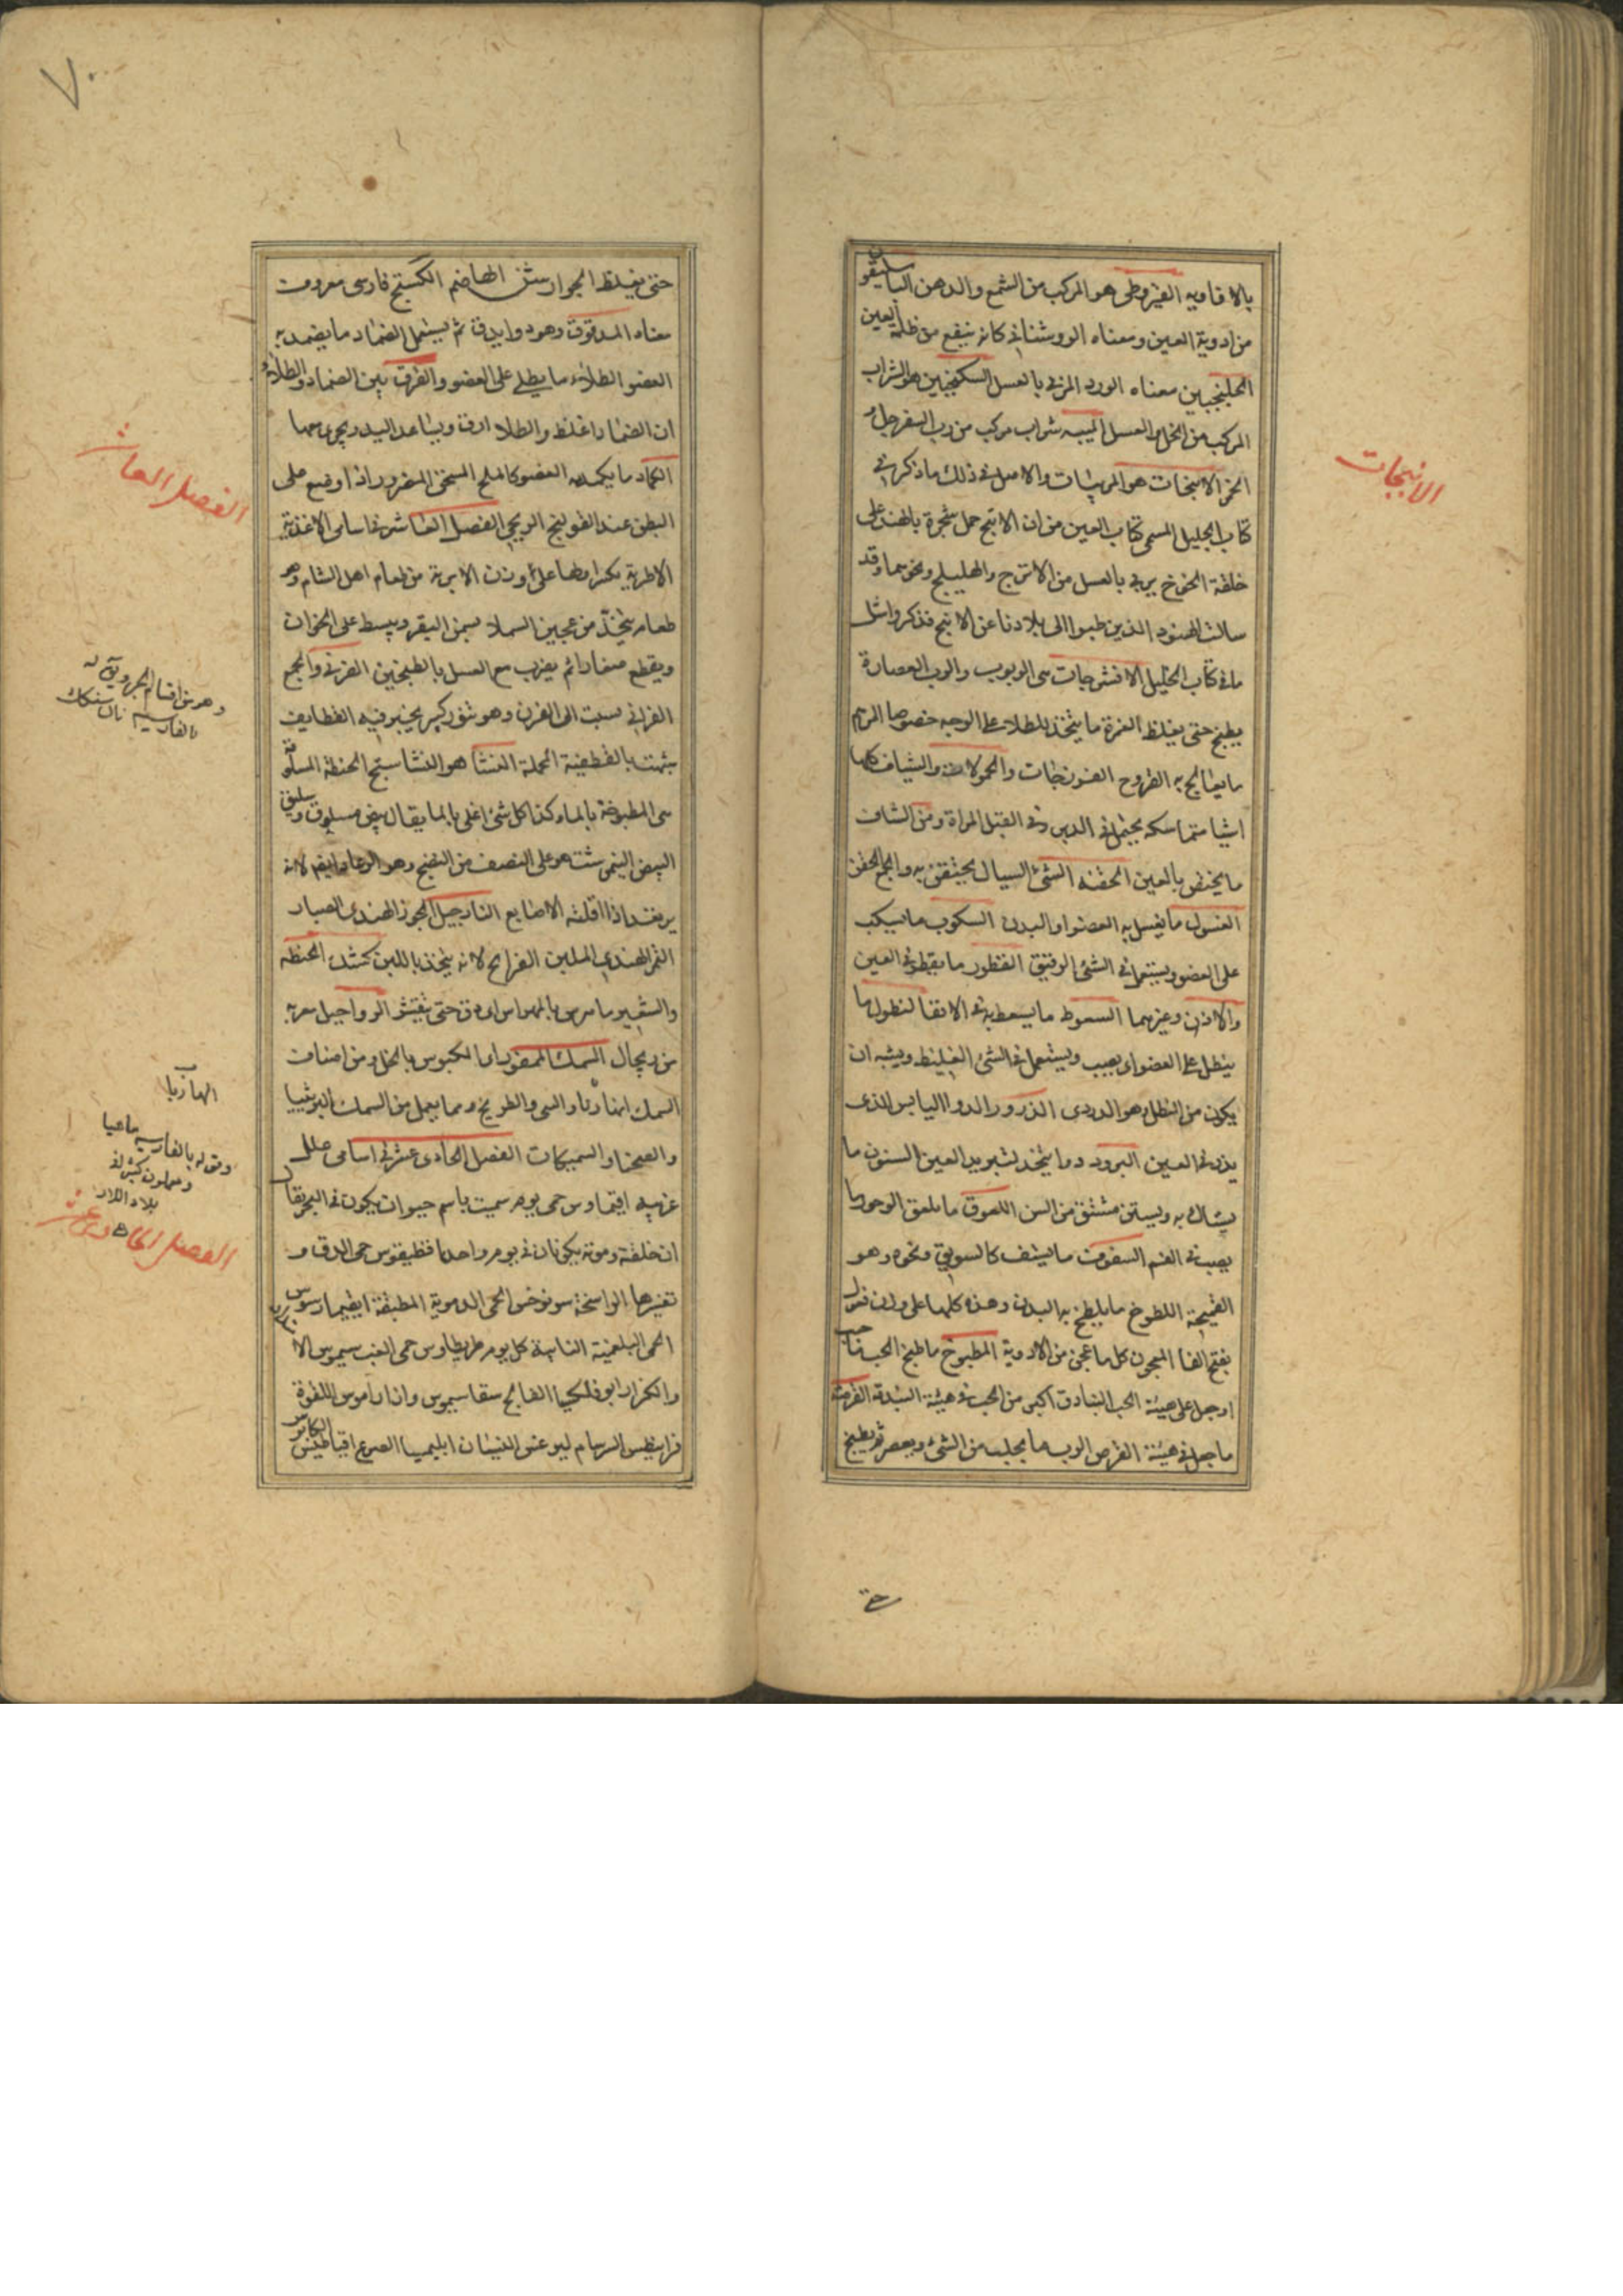 بالافاويه القيروطي هو المركب من الشمع والدهن الباسليقون
من ادوية العين ومعناه الروشناي كانه ينفع من ظلمة العين
الجلنجبين معناه الورد المربى بالعسل السكنجبين هو الشراب
المركب من الخل والعسل الميبه شراب مركب من رب السفرجل و
الخمر الانبجات هو المربيات والاصل في ذلك ما ذكر في
كتاب الجليل المسمى كتاب العين من ان الانبج حمل شجرة بالهند على
خلقة الخوخ يربى بالعسل من الاترج والهليلج ونحوهما وقد
سالت الهنود الذين جلبوا الى بلادنا عن الانبج فذكروا مثل
ما في كتاب الخليل الافشرجات هى الربوب والرب العصارة
يطبخ حتى يغلظ الغمرة ما يتخذ للطلاء على الوجه خصوصا المرهم
ما يعالج به القروح الفرزجات والحمولات والشياف كلها
اشيا متماسكه يحتمل في الدبر وفي القبل المراة ومن الشياف
ما يختص بالعين الحقنه الشئ السيال يحتقن به والجمع الحقن
الغسول ما يغسل به العضو او البدن السكوب ما يسكب
على العضو ويستعمل في الشئ الرقيق القطور ما يقطر في العين
والاذن وغيرهما السعوط ما يسعط به في الانف النطول ما
ينطل على العضو اى يصيب ويستعمل في الشئ الغليظ ويشبه ان
يكون من النطل وهو الدردى الذرور الدوا اليابس الذى
يذر في العين البرود دوا يتخذ لتبريد العين السنون ما
يستاك به ويستن مشتق من السن اللعوق ما يلعق الوجور ما
يصب في الفم السفوف ما يسف كالسويق ونحوه وهو
القميحة اللطوخ ما يلطخ به البدن وهذه كلها على وزن فعول
بفتح الفا المعجون كل ما عجن من الادوية المطبوخ ما طبخ الحب ما حبب
او جعل على هيئة الحب البنادق اكبر من الحب في هيئة البندقه القرصه
ما جعل في هيئة القرص الرب ما يحلب من الشئ ويعصر ثم يطبخ
حتى
الانبجات
٧٠
حتى يغلظ الجوارشن الهاضم الكستج فارسى معروف
معناه المدقوق وهو دوا يدق ثم يستعمل الضماد ما يضمد به
العضو الطلاء ما يطلى على العضو والفرق بين الضماد والطلاء
ان الضماد اغلظ والطلا ارق ويساعد اليد ويجرى معها
الكماد ما يكمد به العضو كالملح المسخن المضرور اذا وضع على
البطن عند القولنج الريحي الفصل العاشر في اسامى الاغذية
الاطرية بكسر اولها على وزن الابرية من طعام اهل الشام وهو
طعام يتخذ من عجين السملا بسمن البقر ويبسط على الخوان
ويقطع صغارا ثم يضرب مع العسل بالطبخين الفرني والجمع
الفراني نسبت الى الفرن وهو تنور كبير يخبز فيه القطايف
شبهت بالقطيفية المخملة النشا هو النشاستج الحنطة المسلوقة
هى المطبوخة بالماء وكذا كل شئ اغلى بالما يقال بيض مسلوق وسليق
البيض النيمرشت هو على النصف من النضج وهو الرعاد ايضا لانه
يرتعد اذا اقلته الاصابع النارجيل الجوز الهندى الصبار
التمر الهندى الملبن الفرايح لانه يتخذ باللبن كشك الحنطه
والشعير ما هرس بالمهراس اى دق حتى تقشر الرواجيل معرب
من ريچال السمك الممقور اى المكبوس بالخل ومن اصناف
السمك ايضا
والصحنا والسميكات الفصل الحادى عشر في اسامى علل
غريبه افيماروس حمى يوم سميت باسم حيوان يكون في البحر يقال
ان خلقته وموته يكونان في يوم واحد اقطيقوس حمى الدق و
تفسيرها الراسخة سونوخس الحمى الدموية المطبقة ايفيمارسوس
الحمى البلغمية النايبة كل يوم طريطاوس حمى الغب
والكزاز ابوفلكحيا الفالج
فرانيطس السرسام ليثرغس النسيان ابليميا الصرع افيالطس الكابوس
الفصل العاشر
وهو من اقسام
بالفارسيه نان سنكك
الهازبا
وقوله بالفارسيه ماهيا
بلاد اللار
الفصل الحادى عشر